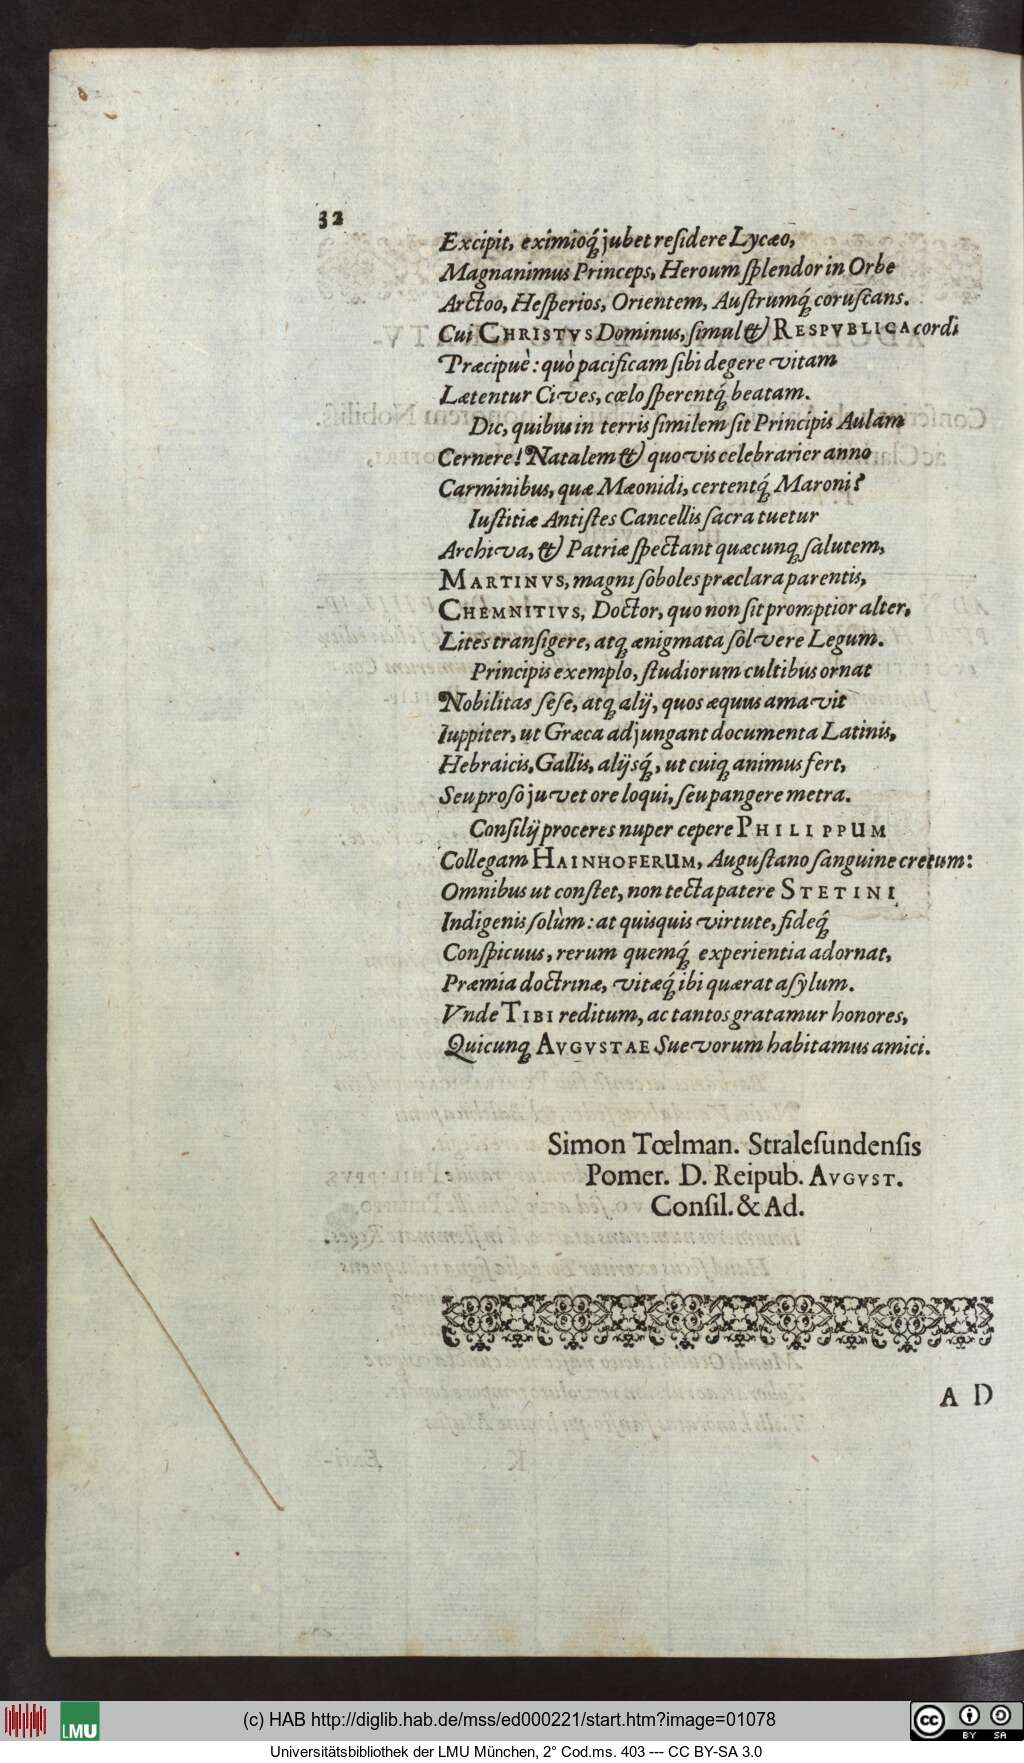 32
Excipit, eximioq́; jubet reſidere Lycæo,
Magnanimus Princeps, Heroum ſplendor in Orbe
Arctoo, Heſperios, Orientem, Auſtrumq́; coruſcans.
Cui CHRISTVS Dominus, ſimul & RESPVBLICA cordi
Præcipuè: quò pacificam ſibi degere vitam
Lætentur Cives, cœlo ſperentq́; beatam.
Dic, quibus in terris ſimilem ſit Principis Aulam
Cernere! Natalem & quovis celebrarier anno
Carminibus, quæ Mæonidi, certentq́; Maroni?
Iuſtitiæ Antiſtes Cancellis ſacra tuetur
Archiva, & Patriæ ſpectant quæcunq; ſalutem,
MARTINVS, magni ſoboles præclara parentis,
CHEMNITIVS, Doctor, quo non ſit promptior alter,
Lites tranſigere, atq; ænigmata ſolvere Legum.
Principis exemplo, ſtudiorum cultibus ornat
Nobilitas ſeſe, atq; alij, quos æquus amavit
Iuppiter, ut Græca adjungant documenta Latinis,
Hebraicis, Gallis, alijsq́;, ut cuiq; animus fert,
Seu proſo juvet ore loqui, ſeu pangere metra.
Conſilij proceres nuper cepere PHILIPPUM
Collegam HAINHOFERUM, Auguſtano ſanguine cretum:
Omnibus ut conſtet, non tecta patere STETINI
Indigenis ſolùm: at quisquis virtute, fideq́;
Conſpicuus, rerum quemq́; experientia adornat,
Præmia doctrinæ, vitæq́; ibi quærat aſylum.
Vnde TIBI reditum, ac tantos gratamur honores,
Quicunq; AVGVSTAE Suevorum habitamus amici.
Simon Tœlman. Straleſundenſis
Pomer. D. Reipub. AVGVST.
Conſil. & Ad.
A D
LMU
(c) HAB http://diglib.hab.de/mss/ed000221/start.htm?image=01078
cc BY SA
Universitätsbibliothek der LMU München, 2° Cod.ms. 403 --- CC BY-SA 3.0